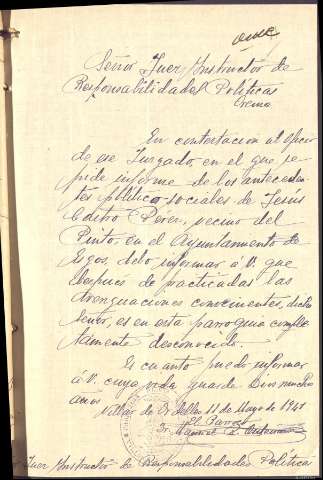 Señor Juez Instructor de
Responsabilidades Políticas
Orense
En contestacion al oficio
de ese Juzgado, en el que se
pide informe de los anteceden
tes politico sociales de Jesús
Perez, vecino del
Pinto, en el Ayuntamiento de
debo informar a V. que
despues de practicadas las
averiguaciones convenientes, dicho
Señor, es en esta parroquia comple
tamente desconocido.
Es cuanto puedo informar
á V. cuya vida guarde Dios muchos
años
11 de Mayo de 1941
El Parroco
Manuel
Juez Instructor de Responsabilidades Politicas